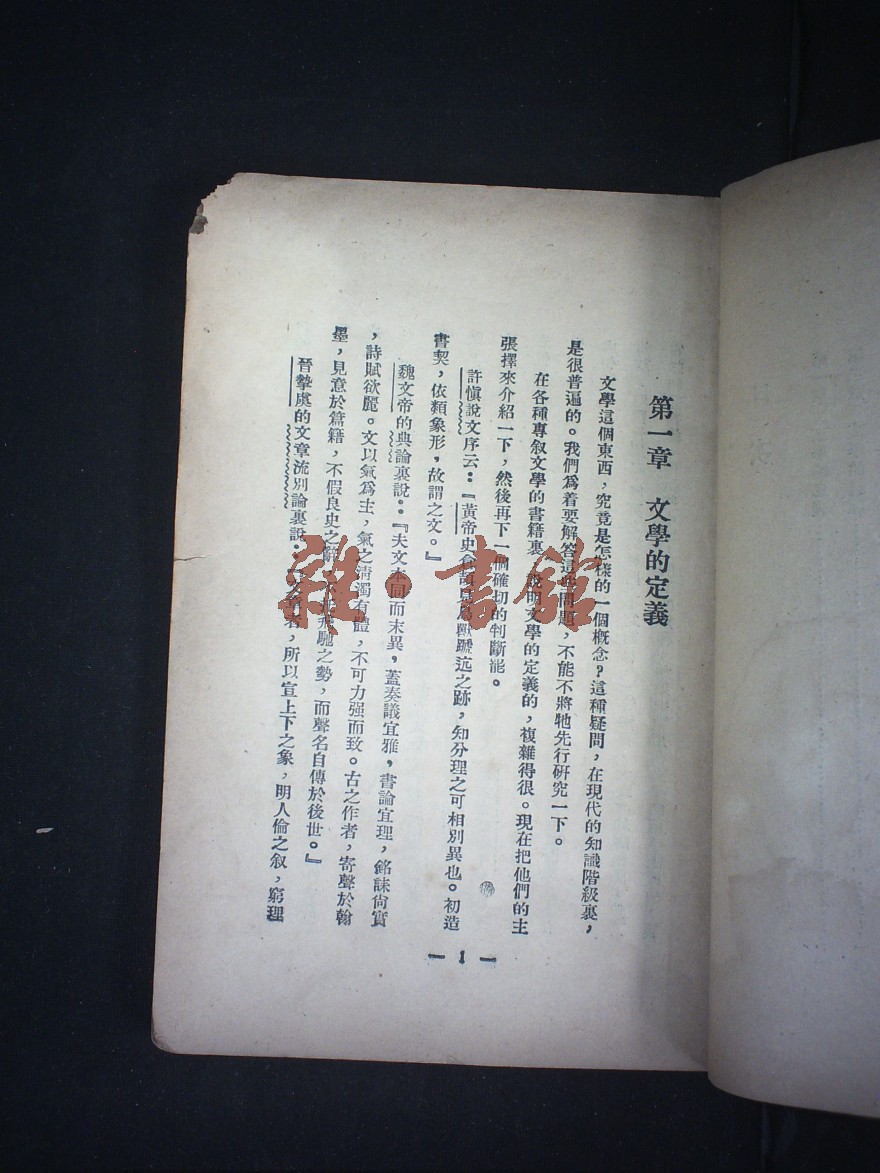 第一章　文學的定義
文學這個東西，究竟是怎樣的一個概念？這種疑問，在現代的知識階級裏，
是很普遍的。我們爲着要解答這些問題，不能不將牠先行研究一下。
在各種專叙文學的書籍裏　說明文學的定義的，複雜得很。現在把他們的主
張擇來介紹一下，然後再下一個確切的判斷罷。
許愼說文序云：『黃帝史倉頡見鳥獸蹏迒之跡，知分理之可相別異也。初造
書契，依類象形，故謂之文。』
魏文帝的典論裏說：『夫文本同而末異，蓋奏議宜雅，書論宜理，銘誄尙實
，詩賦欲麗。文以氣爲主，氣之淸濁有體，不可力强而致。古之作者，寄聲於翰
墨，見意於篇籍，不假良史之辭，馳之勢，而聲名自傳於後世。』
晉摯虞的文章流別論裏說：者，所以宣上下之象，明人倫之叙，窮理
— 1 —
雜·書館